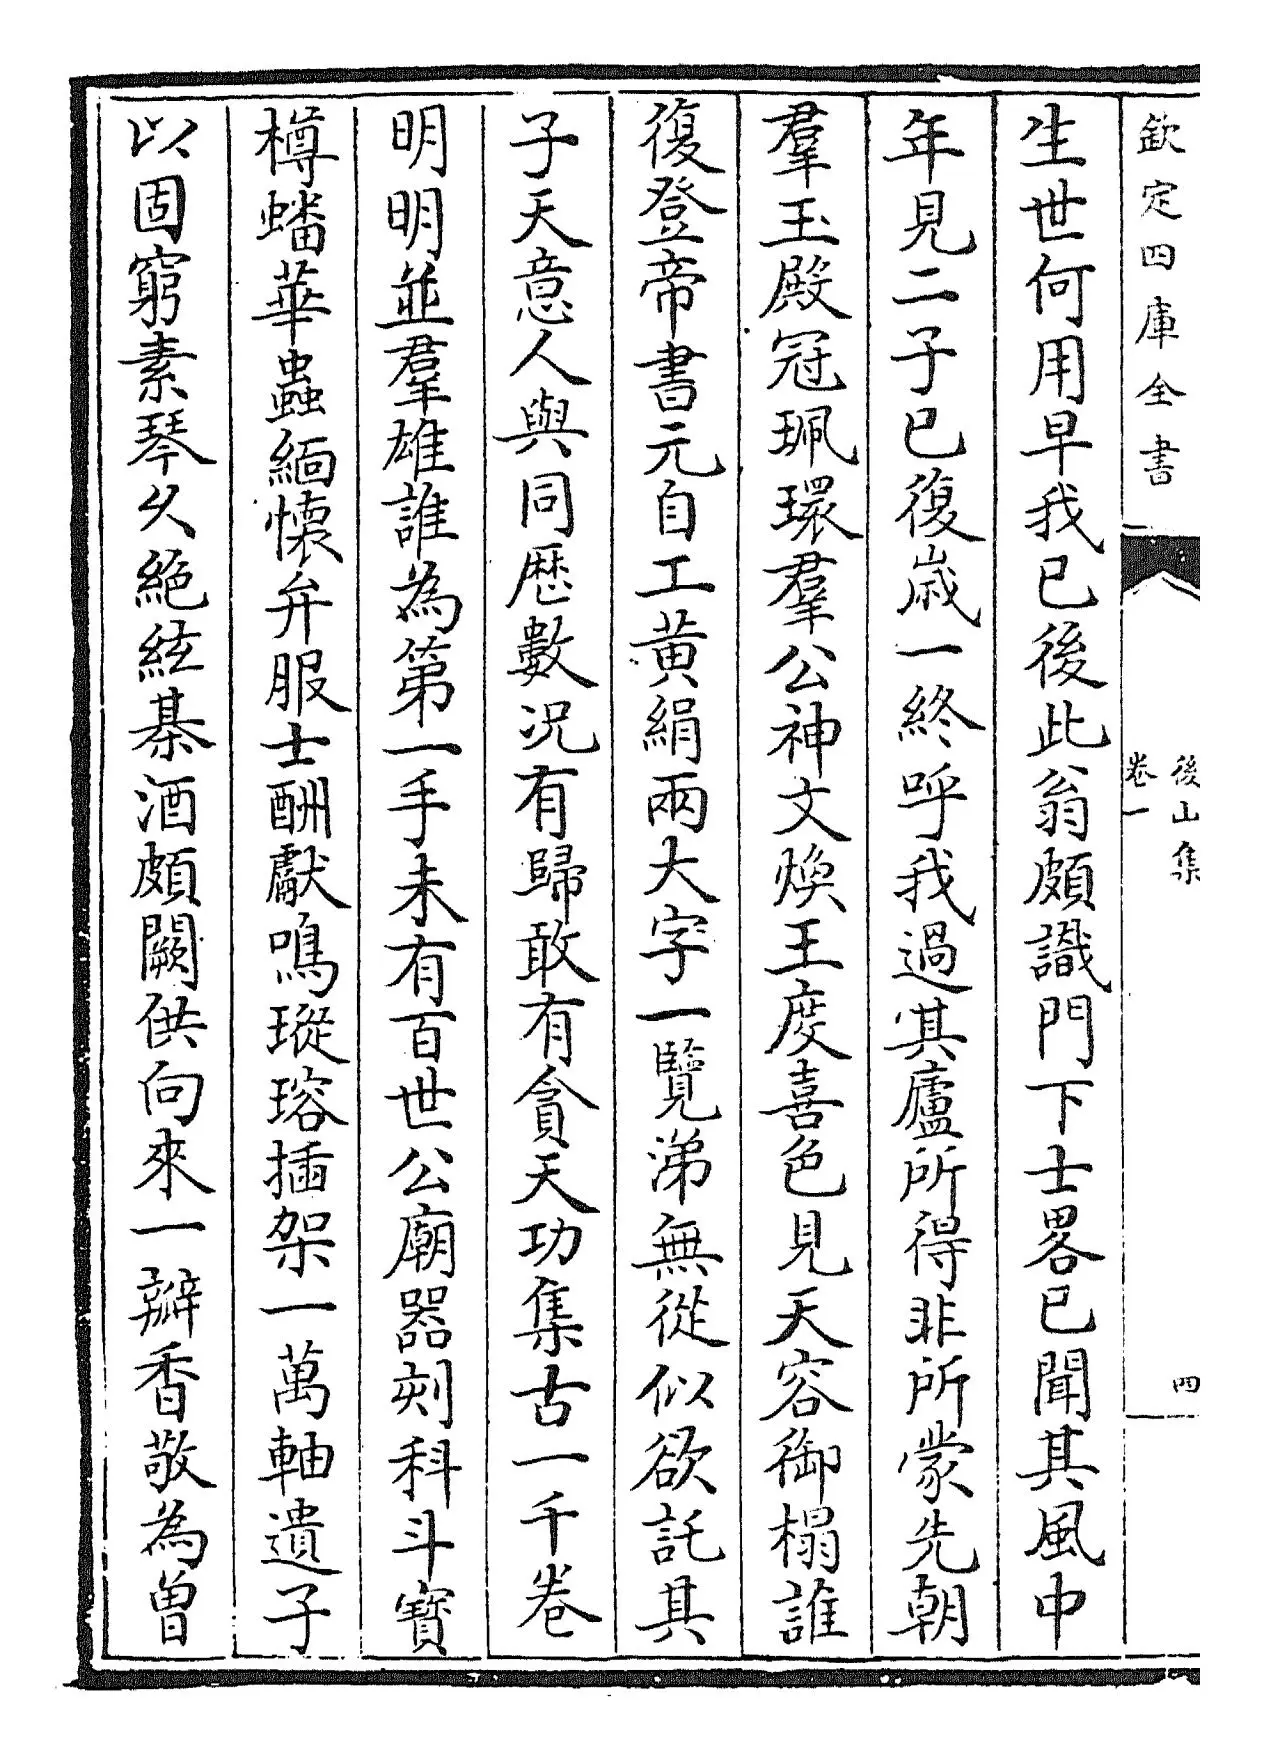 欽定四庫全書
後山集
卷一
四
生世何用早我已後此翁頗識門下士畧已聞其風中
年見二子已復歲一終呼我過其廬所得非所蒙先朝
羣玉殿冠珮環羣公神文煥王度喜色見天容御榻誰
復登帝書元自工黃絹兩大字一覽涕無從似欲託其
子天意人與同歷數况有歸敢有貪天功集古一千卷
明明並羣雄誰為第一手未有百世公廟器刻科斗寶
樽蟠華蟲緬懷弁服士酬獻鳴瑽瑢插架一萬軸遺子
以固窮素琴久絶絃棊酒頗闕供向來一辦香敬為曾